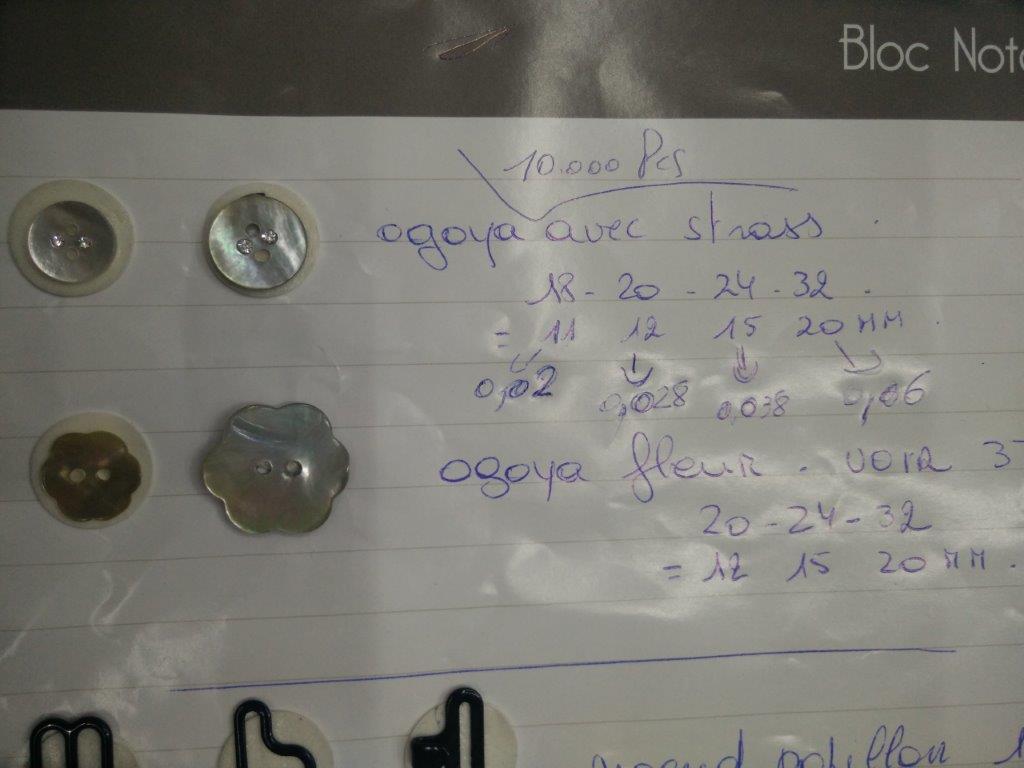 Bloc Not
10.000 Pcs
ogoya avec strass .
18 - 20 - 24 - 32 .
= 11 12 15 20 MM .
0,02 0,028 0,038 0,06
ogoya fleur . voir 3
20 - 24 - 32
= 12 15 20 MM .
noeud papillon 1